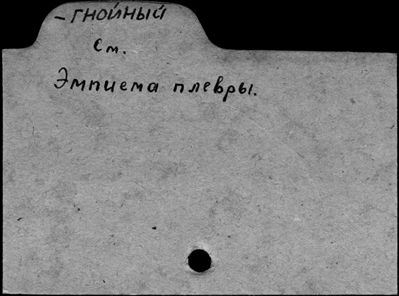 – ГНОЙНЫЙ
См.
Эмпиема плевры.